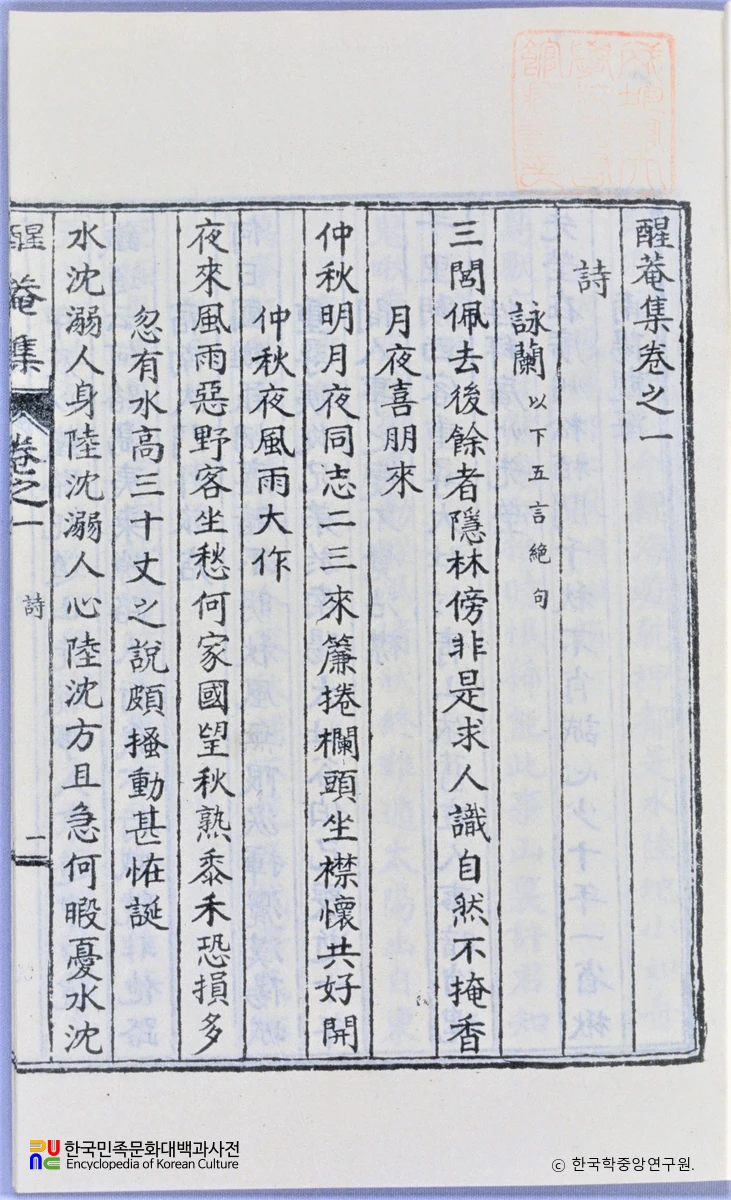 醒菴集卷之一
詩
詠蘭 以下五言絶句
三閭佩去後餘者隱林傍非是求人識自然不掩香
月夜喜朋來
仲秋明月夜同志二三來簾捲欄頭坐襟懷共好開
仲秋夜風雨大作
夜來風雨惡野客坐愁何家國望秋熟黍禾恐損多
忽有水高三十丈之說頗搔動甚怪誕
水沈溺人身陸沈溺人心陸沈方且急何暇憂水沈
醒菴集 卷之一 詩 一
한국민족문화대백과사전
Encyclopedia of Korean Culture
© 한국학중앙연구원.